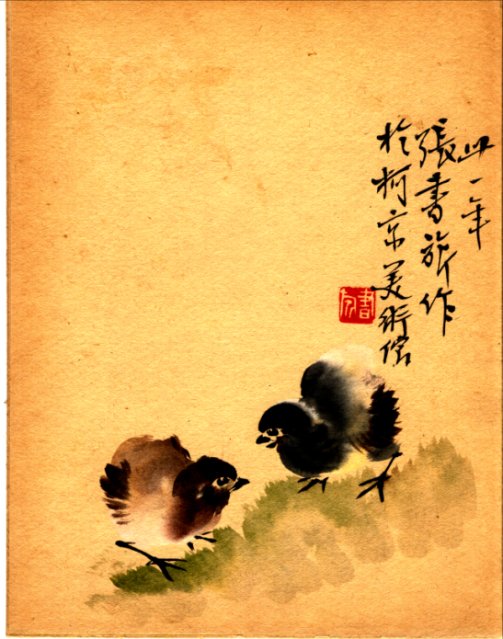 卅一年
張書旂作
於柯京美術館
書旂